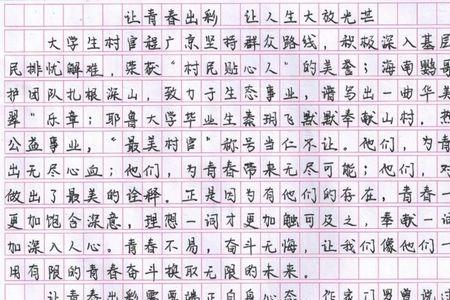 让青春出彩 让人生大放光芒
大学生村官程广京坚持群众路线,积极深入基层
民排忧解难,荣获“村民贴心人”的美誉;海南鹦哥
护团队扎根深山,致力于生态事业,谱写出一曲华美
翠”乐章;耶鲁大学毕业生秦玥飞默默奉献山村,热
公益事业,“最美村官”称号当仁不让。他们,为青
出无尽心血;他们,为青春带来无尽可能;他们,对
做出了最美的诠释。正是因为有他们的存在,青春一
更加饱含深意,理想一词才更加触可及之,奉献一词
加深入人心。青春不易,奋斗无悔,让我们像他们一
用有限的青春奋斗换取无限的未来。
让青春出彩需要端正自身心态。作家